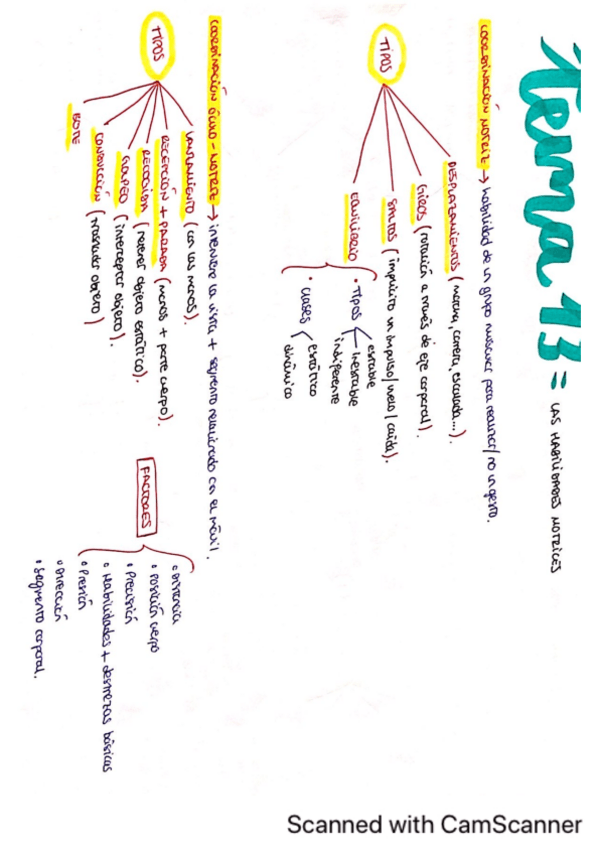 Tema 13 = LAS HABILIDADES MOTRICES
COORDINACIÓN MOTRIZ → habilidad de un grupo muscular para realizar/no un gesto.
TIPOS
DESPLAZAMIENTOS (marcha, carrera, escalada...).
GIROS (rotación a través de eje corporal).
SALTOS (implícito un impulso/vuelo/caída).
EQUILIBRIO
• TIPOS
estable
inestable
indiferente
• CLASES
estático
dinámico
COORDINACIÓN ÓCULO-MOTRIZ → interviene la vista + segmento relacionado con el móvil.
TIPOS
LANZAMIENTO (con las manos).
RECEPCIÓN + PARADA (manos + parte cuerpo).
RECOGIDA (retener objeto estático).
GOLPEO (interceptar objeto).
CONDUCCIÓN (trasladar objeto)
BOTE
FACTORES
• Distancia
• Posición cuerpo
• Precisión
• Habilidades + destrezas básicas
• Presión
• Dirección
• Segmento corporal.
Scanned with CamScanner